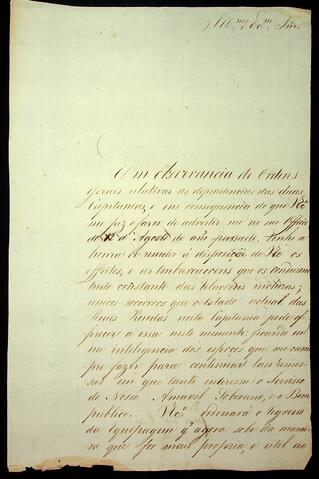 Ill.mo e Ex.mo Snr.
Em observancia de Ordens
geraes relativas as dependencias das duas
Capitanias, e em consequencia do que V.Ex.ª
me faz o favor de advertir me no seu Officio
de 12 d'Agosto do año passado, tenho a
honra de render à disposição de V.Ex. os
effeitos, e as Embarcaçoens que os conduzem
tudo constante das relaçoens inclusas;
unicos socorros que o Estado actual das
Reaes Rendas nesta Capitania pode of-
frecer a essa neste momento: ficando
na inteligencia dos esforços que me cum-
pre fazer para continuar as remes-
sas em que tanto interessa o Serviço
do Nosso Amavel Soberano, e o Bem
publico. V.Ex.ª ordenará o regresso
da Equipagem q' agora sobe da manei-
ra que for mais propria, e util ao